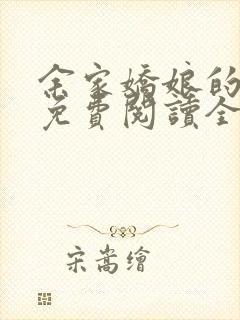 余家嬌娘的
免費閱讀全
宋嵩繪